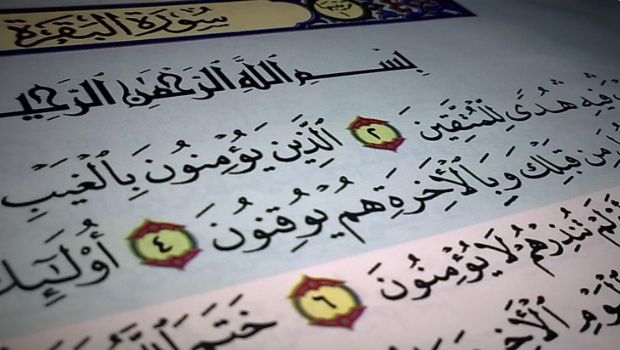 سُورَةُ الْبَقَرَةِ
بِسْمِ ٱللَّهِ ٱلرَّحْمَٰنِ ٱلرَّحِي
فِيهِ هُدًى لِّلْمُتَّقِينَ ٢ ٱلَّذِينَ يُؤْمِنُونَ بِٱلْغَيْبِ
مِن قَبْلِكَ وَبِٱلْأَخِرَةِ هُمْ يُوقِنُونَ ٤ أُوْلَٰٓئِكَ
تُنذِرْهُمْ لَا يُؤْمِنُونَ ٦ خَتَمَ ٱللَّهُ
ٱلْيَوْمِ ٱلْأَخِرِ